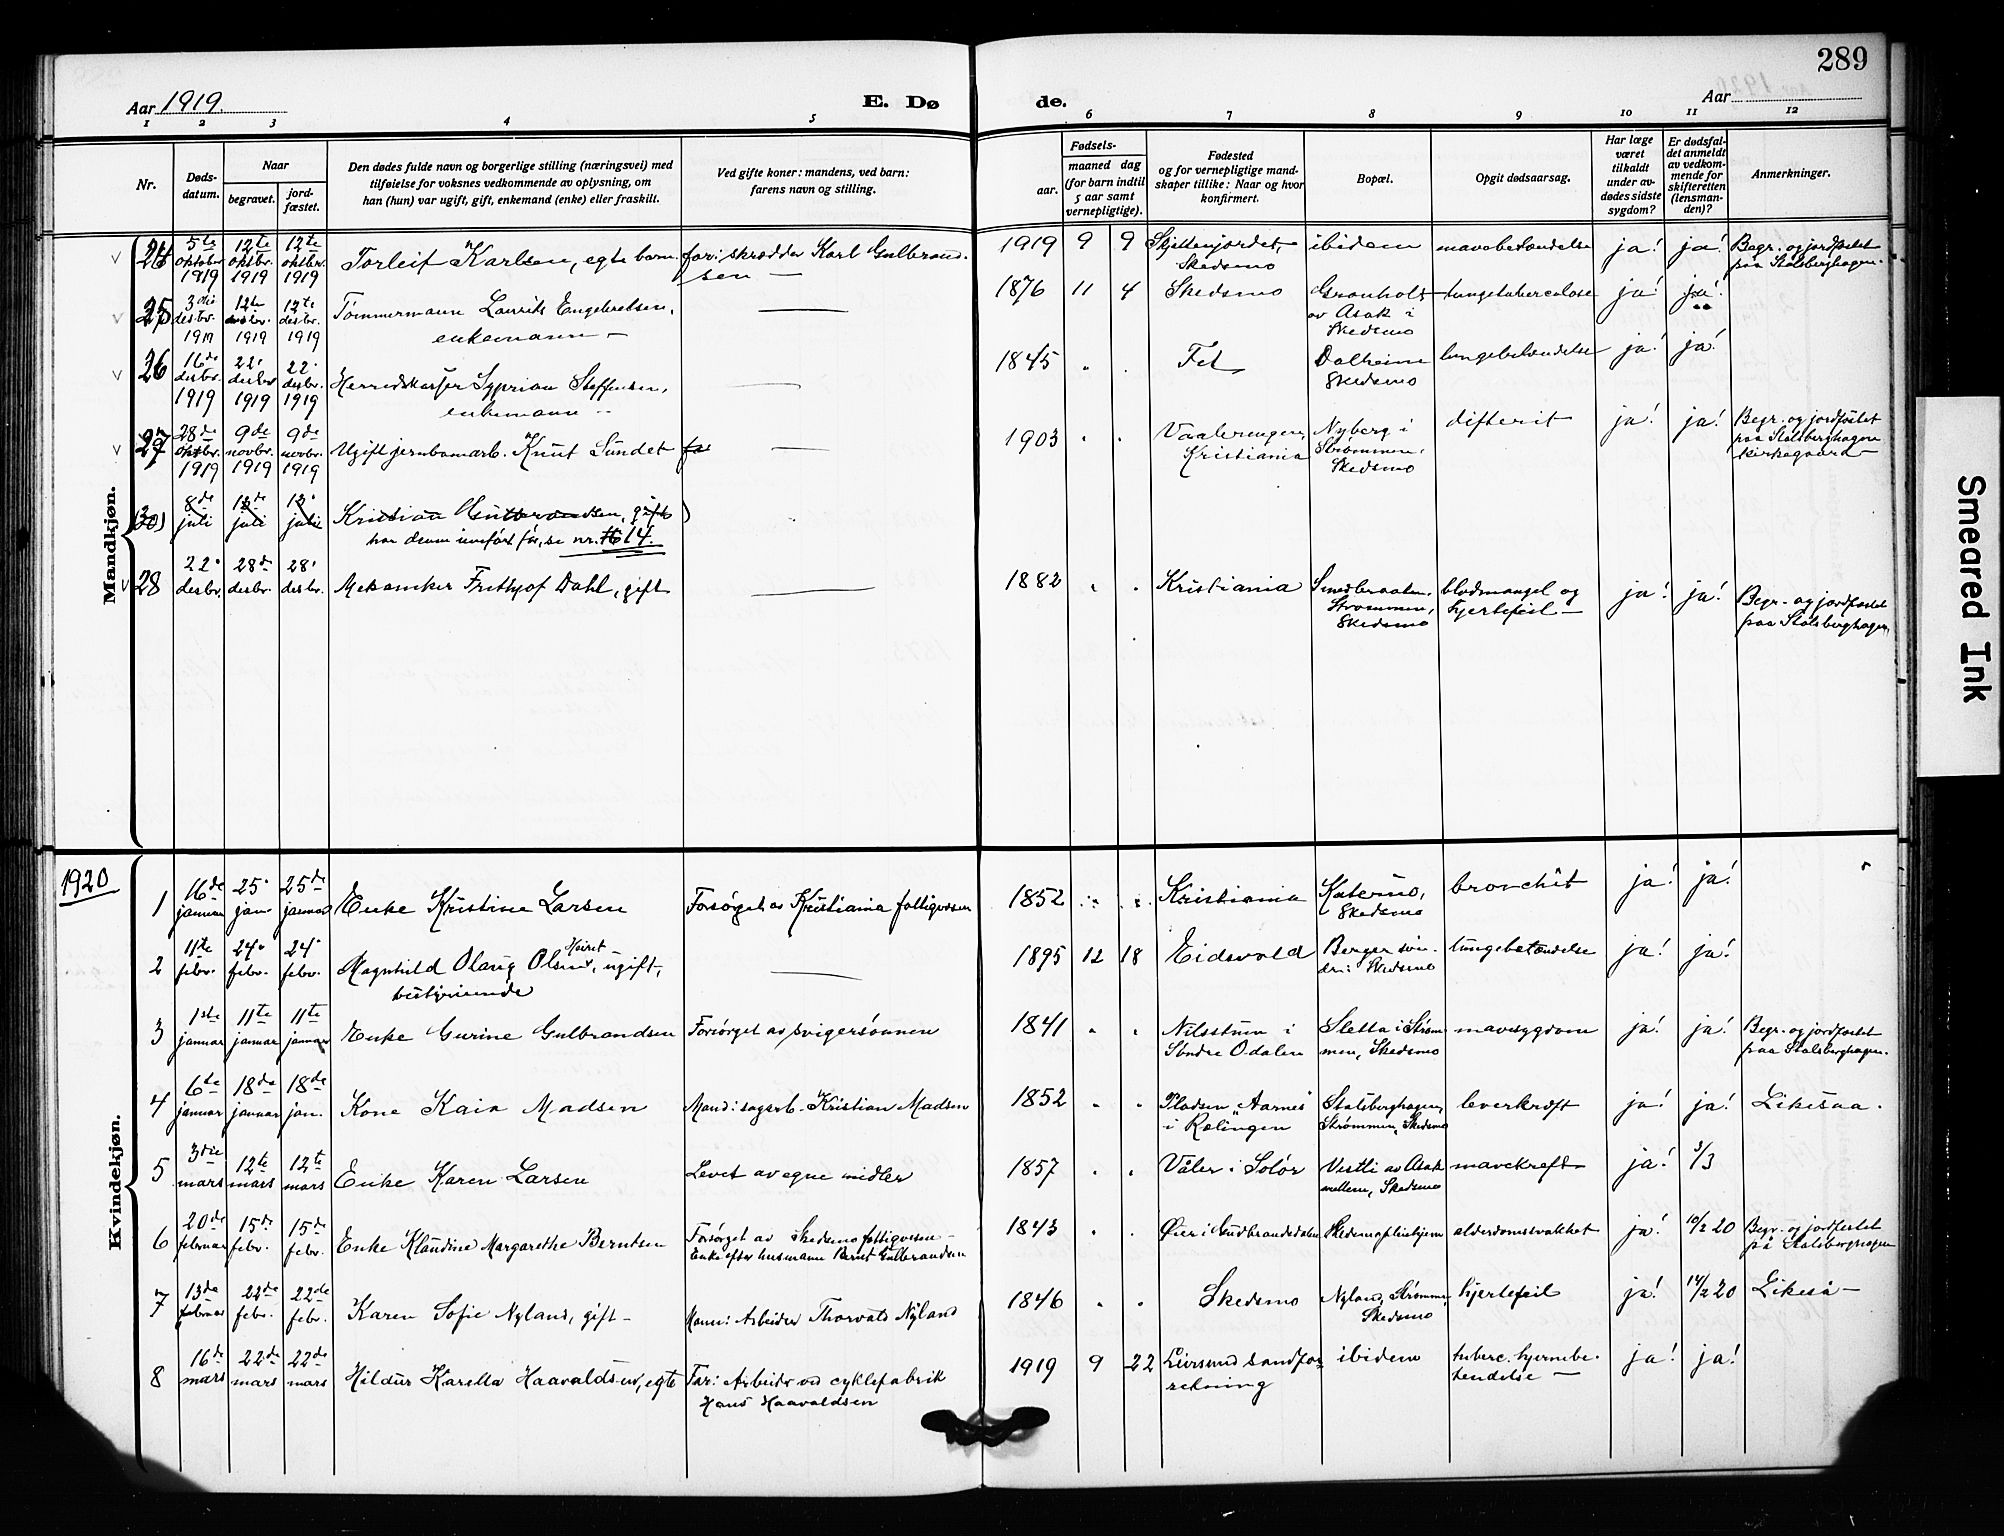 289
Aar 1919.
E. Dø
de.
Aar
1 2 3 4 5 6 7 8 9 10 11 12
Nr.
Døds-
datum.
Naar
begravet.
jord-
fæstet.
Den dødes fulde navn og borgerlige stilling (næringsvei) med
tilføielse for voksnes vedkommende av oplysning, om
han (hun) var ugift, gift, enkemand (enke) eller fraskilt.
Ved gifte koner: mandens, ved barn:
farens navn og stilling.
Fødsels-
aar.
maaned dag
(for barn indtil
5 aar samt
vernepligtige).
Fødested
og for vernepligtige mand-
skaper tillike: Naar og hvor
konfirmert.
Bopæl.
Opgit dødsaarsag.
Har læge
været
tilkaldt
under av-
dødes sidste
sygdom?
Er dødsfal-
det anmeldt
av vedkom-
mende for
skifteretten
(lensman-
den)?
Anmerkninger.
Mandkjøn.
5te 12te 12te
oktobr. oktbr. oktbr.
1919 1919 1919
Torleif Karlsen, egte barn
far: skrædder Karl Gulbrand-
sen —
1919 9 9 Skjettenjordet, Skedsmo ibidem mavebetændelse ja! ja! Begr. og jordfæstet
paa Stalsberghagen.
25 3die 12te 12te
desbr. desbr. desbr.
1919 1919 1919
Tømmermann Laurits Engebretsen,
enkemann —
1876 11 4 Skedsmo Grønholt av Asak i Skedsmo lungetuberculose ja! ja!
26 16de 22. 22.
desbr. desbr. desbr.
1919 1919 1919
Herredskasser Syprian Steffensen,
enkemann
1845 Fet Dalheim Skedsmo lungebetændelse ja! ja!
27 28de 9de 9de
oktbr. novbr. novbr.
1919 1919 1919
Ugift jernbanearb. Knut Sundet
1903 Vaalerengen, Kristiania Nyberg i Strømmen, Skedsmo difterit ja! ja! Begr. og jordfæstet
paa Stalsberghagen
kirkegaard —
(30) 8de 12de 12.
juli juli juli
Kristian Gulbrandsen, gift
har denne innført før, se nr. 14.
28 22. 28de 28.
desbr. desbr. desbr.
Mekaniker Frithjof Dahl, gift
1882 Kristiania Smedbraaten, Strømmen, Skedsmo blodmangel og hjertefeil — ja! ja! Begr. og jordfæstet
paa Stalsberghagen,
1920
Kvindekjøn.
1 16de 25. 25de
januar jan. januar
Enke Kristine Larsen
Forsørget av Kristiania fattigvæsen
1852 Kristiania Skedsmo bronchit ja! ja!
2 11te 24. 24.
febr. febr. febr.
Magnhild Olaug Olsen, ugift,
bestyrerinde
1895 12 18 Eidsvold Berger søn-
dre i Skedsmo lungebetændelse ja! ja!
3 1ste 11te 11te
januar januar januar
Enke Gurine Gulbrandsen
Forsørget av svigersønnen
1841 Nilsstuen i
Søndre Odalen Sletta i Strøm-
men, Skedsmo mavesygdom ja! ja! Begr. og jordfæstet
paa Stalsberghagen.
4 6te 18de 18de
januar januar jan.
Kone Kaia Madsen
Mand: sagarb. Kristian Madsen
1852 Pladsen "Aarnes"
i Rælingen Stalsberghagen,
Strømmen, Skedsmo leverkræft ja! ja! Likesaa.
5 3die 12te 12te
mars mars mars
Enke Karen Larsen
Levet av egne midler
1857 Våler i Solør Vestli av Asak
mellem, Skedsmo mavekreft ja! 3/3
6 20de 15de 15de
februar febr. febr.
Enke Klaudine Margarethe Berntsen
Forsørget av Skedsmo fattigvesen —
Enke efter husmann Bernt Gulbrandsen
1843 Øier i Gudbrandsdalen Skedsmo pleiehjem alderdomssvakhet ja! 10/2 20 Begr. og jordfestet
på Stalsberghagen
7 13de 22de 22de
februar febr. febr.
Karen Sofie Nyland, gift —
Mann: Arbeider Thorvald Nyland
1846 Skedsmo Nyland, Strømmen,
Skedsmo hjertefeil ja! 14/2 20 Likeså —
8 16de 22de 22de
mars mars mars
Hildur Karetta Haavaldsen, egte
Far: Arbeider ved cyklefabrik
Hans Haavaldsen
1919 9 22 Leirsund sandfor-
retning ibidem tuberc. hjernebe-
tendelse — ja! ja!
Smeared Ink